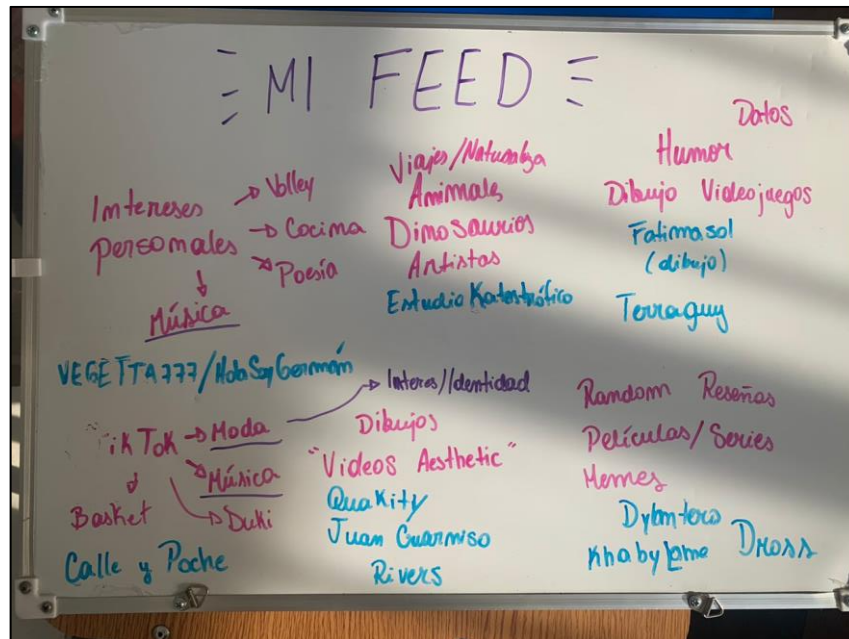 MI FEED
Intereses
personales
→ Volley
→ Cocina
→ Poesía
Música
VEGETTA777/HolaSoyGermán
Viajes/Naturaleza
Animales
Dinosaurios
Artistas
Estudio Katastrófico
Datos
Humor
Dibujo Videojuegos
Fatimasol
(dibujo)
Terraguy
TikTok → Moda → Interes/Identidad
Música
Duki
Basket
Calle y Poche
Dibujos
"Videos Aesthetic"
Quakity
Juan Guarnizo
Rivers
Random Reseñas
Películas/Series
Memes
Dylantero
Khaby Lame Dross